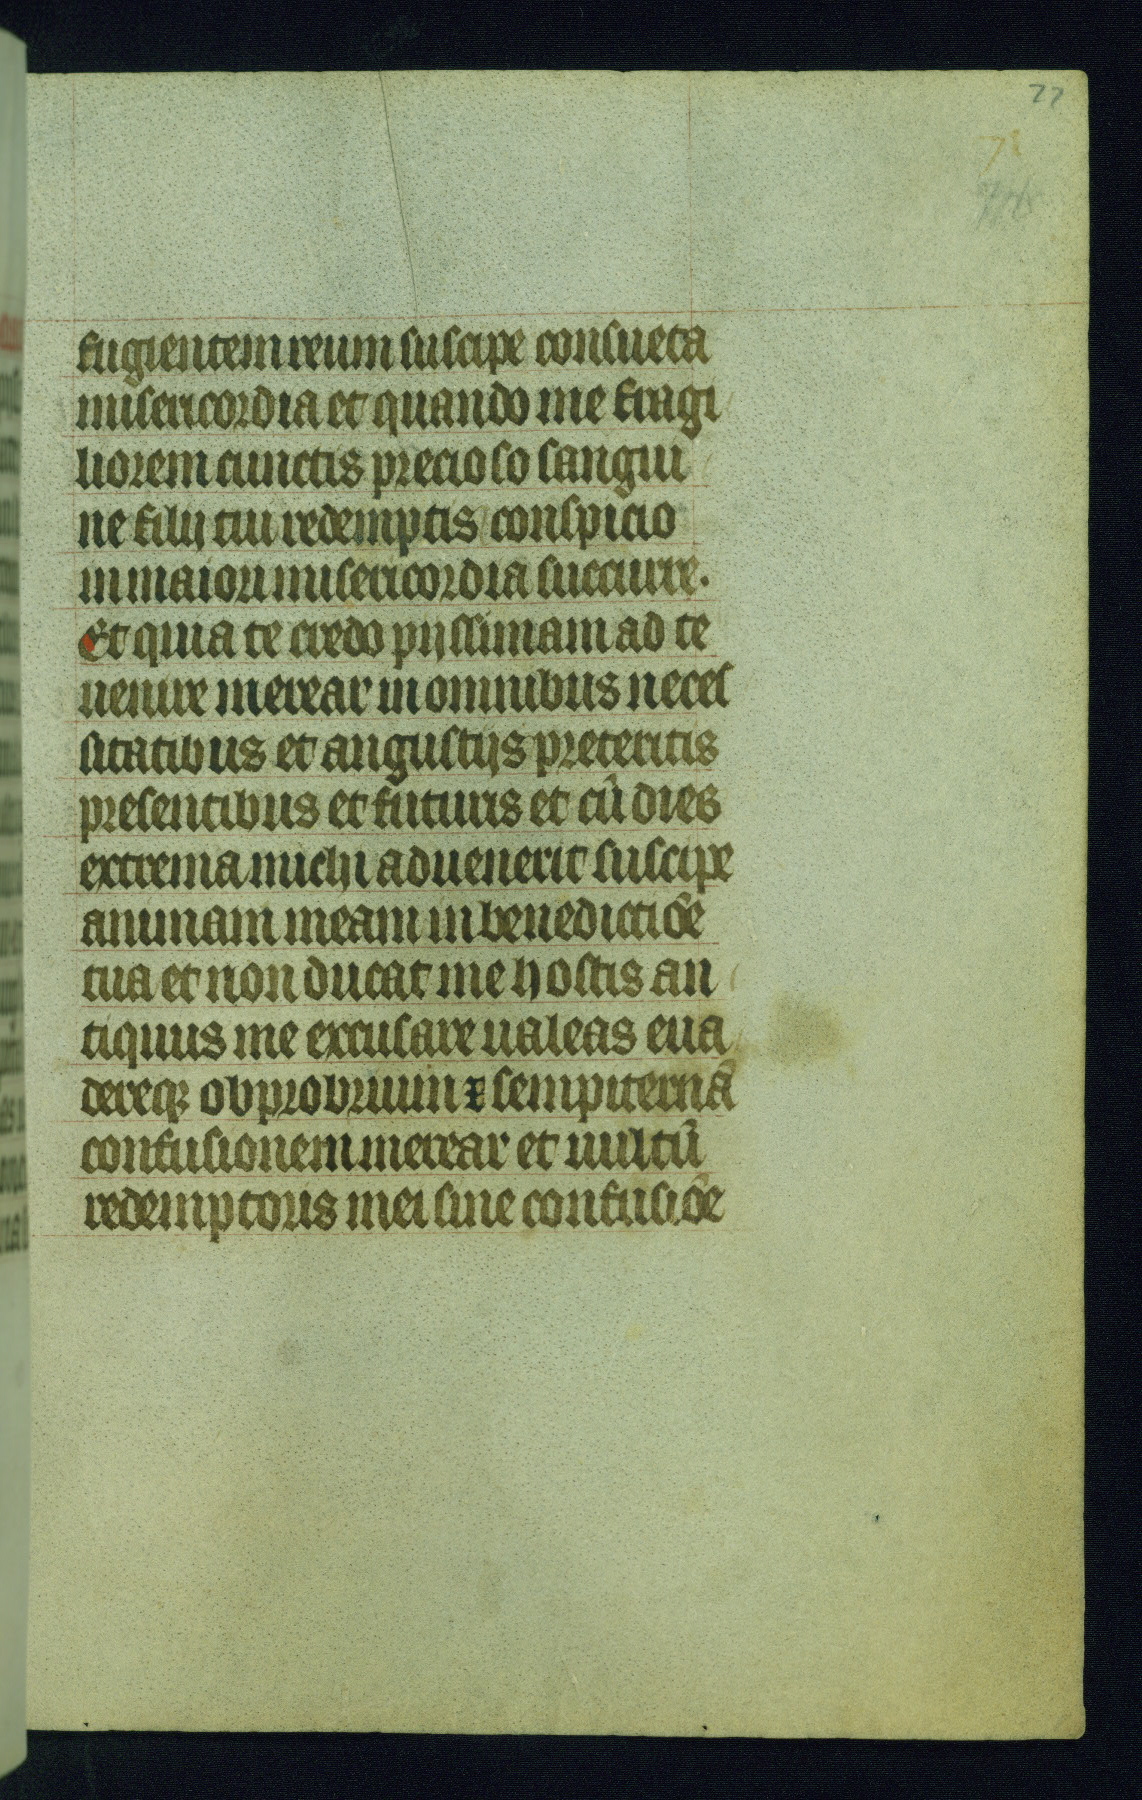 77
71
fugientem reum suscipe consueta
misericordia et quando me fragi
liorem cunctis precioso sangui
ne filij tui redemptis conspicio
in maiori misericordia succurre.
Et quia te credo pijssimam ad te
uenire merear in omnibus neces
sitatibus et angustijs preteritis
presentibus et futuris et cū dies
extrema michi aduenerit suscipe
animam meam in benedictiōe
tua et non ducat me hostis an
tiquus me excusare ualeas eua
dereqꝫ obprobrium ⁊ sempiternā
confusionem merear et uultū
redemptoris mei sine confusiōe